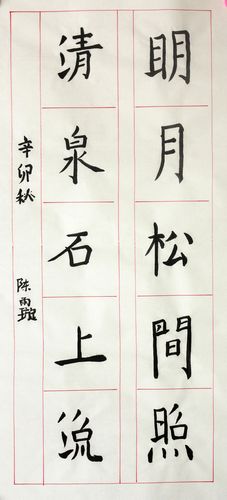 明月松間照
清泉石上流
辛卯秋
陈雨